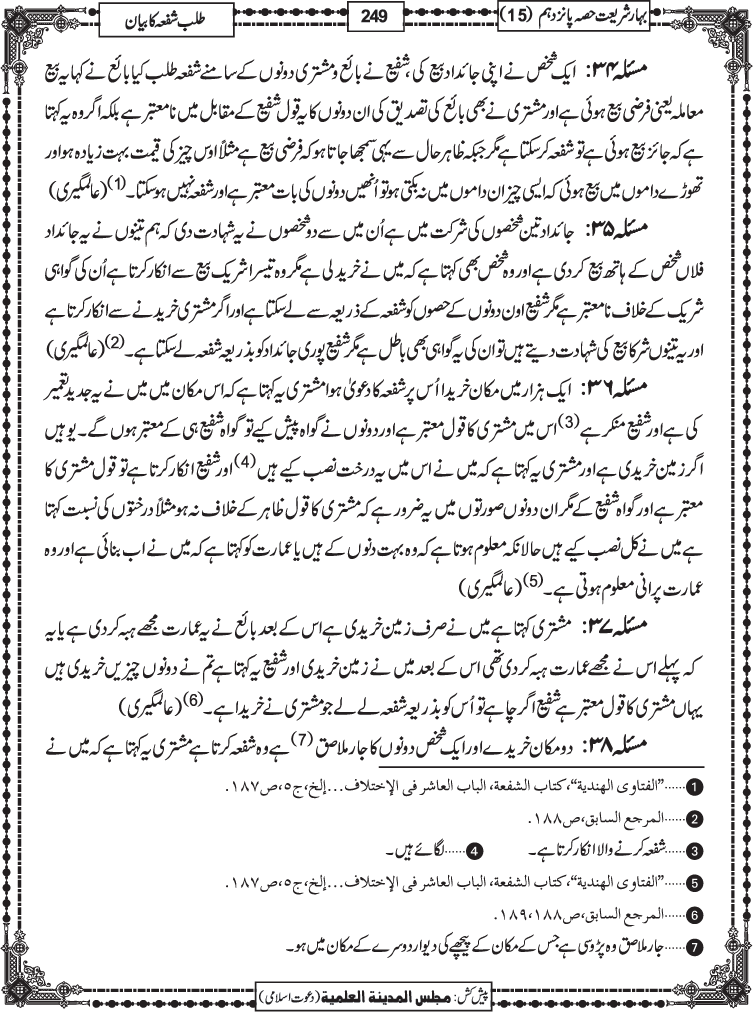 بہار شریعت حصہ پانزدہم (15)
249
طلب شفعہ کا بیان
مسئلہ ۳۴: ایک شخص نے اپنی جائداد بیع کی، شفیع نے بائع و مشتری دونوں کے سامنے شفعہ طلب کیا بائع نے کہا یہ بیع
معاملہ یعنی فرضی بیع ہوئی ہے اور مشتری نے بھی بائع کی تصدیق کی ان دونوں کا یہ قول شفیع کے مقابل میں نا معتبر ہے بلکہ اگر وہ یہ کہتا
ہے کہ جائز بیع ہوئی ہے تو شفعہ کر سکتا ہے مگر جبکہ ظاہر حال سے یہی سمجھا جاتا ہو کہ فرضی بیع ہے مثلاً اوس چیز کی قیمت بہت زیادہ ہو اور
تھوڑے داموں میں بیع ہوئی کہ ایسی چیز ان داموں میں نہ بکتی ہو تو اُنھیں دونوں کی بات معتبر ہے اور شفعہ نہیں ہو سکتا۔(1) (عالمگیری)
مسئلہ ۳۵: جائداد تین شخصوں کی شرکت میں ہے اُن میں سے دو شخصوں نے یہ شہادت دی کہ ہم تینوں نے یہ جائداد
فلاں شخص کے ہاتھ بیع کردی ہے اور وہ شخص بھی کہتا ہے کہ میں نے خرید لی ہے مگر وہ تیسرا شریک بیع سے انکار کرتا ہے اُن کی گواہی
شریک کے خلاف نا معتبر ہے مگر شفیع اون دونوں کے حصوں کو شفعہ کے ذریعہ سے لے سکتا ہے اور اگر مشتری خریدنے سے انکار کرتا ہے
اور یہ تینوں شرکا بیع کی شہادت دیتے ہیں تو ان کی یہ گواہی بھی باطل ہے مگر شفیع پوری جائداد کو بذریعہ شفعہ لے سکتا ہے۔(2) (عالمگیری)
مسئلہ ۳۶: ایک ہزار میں مکان خریدا اُس پر شفعہ کا دعویٰ ہوا مشتری یہ کہتا ہے کہ اس مکان میں میں نے یہ جدید تعمیر
کی ہے اور شفیع منکر ہے(3) اس میں مشتری کا قول معتبر ہے اور دونوں نے گواہ پیش کیے تو گواہ شفیع ہی کے معتبر ہوں گے۔ یوہیں
اگر زمین خریدی ہے اور مشتری یہ کہتا ہے کہ میں نے اس میں یہ درخت نصب کیے ہیں(4) اور شفیع انکار کرتا ہے تو قول مشتری کا
معتبر ہے اور گواہ شفیع کے مگر ان دونوں صورتوں میں یہ ضرور ہے کہ مشتری کا قول ظاہر کے خلاف نہ ہو مثلاً درختوں کی نسبت کہتا
ہے میں نے کل نصب کیے ہیں حالانکہ معلوم ہوتا ہے کہ وہ بہت دنوں کے ہیں یا عمارت کو کہتا ہے کہ میں نے اب بنائی ہے اور وہ
عمارت پرانی معلوم ہوتی ہے۔(5) (عالمگیری)
مسئلہ ۳۷: مشتری کہتا ہے میں نے صرف زمین خریدی ہے اس کے بعد بائع نے یہ عمارت مجھے ہبہ کردی ہے یا یہ
کہ پہلے اس نے مجھے عمارت ہبہ کردی تھی اس کے بعد میں نے زمین خریدی اور شفیع یہ کہتا ہے تم نے دونوں چیزیں خریدی ہیں
یہاں مشتری کا قول معتبر ہے شفیع اگر چاہے تو اُس کو بذریعہ شفعہ لے لے جو مشتری نے خریدا ہے۔(6) (عالمگیری)
مسئلہ ۳۸: دو مکان خریدے اور ایک شخص دونوں کا جار ملاصق(7) ہے وہ شفعہ کرتا ہے مشتری یہ کہتا ہے کہ میں نے
1 ......"الفتاوی الهندية"، كتاب الشفعة، الباب العاشر فی الإختلاف...إلخ، ج٥، ص١٨٧.
2 ......المرجع السابق، ص١٨٨.
3 ......شفعہ کرنے والا انکار کرتا ہے۔ 4 ......لگائے ہیں۔
5 ......"الفتاوی الهندية"، كتاب الشفعة، الباب العاشر فی الإختلاف...إلخ، ج٥، ص١٨٧.
6 ......المرجع السابق، ص١٨٨، ١٨٩.
7 ......جار ملاصق وہ پڑوسی ہے جس کے مکان کے پیچھے کی دیوار دوسرے کے مکان میں ہو۔
پیش کش: مجلس المدینۃ العلمیۃ (دعوت اسلامی)